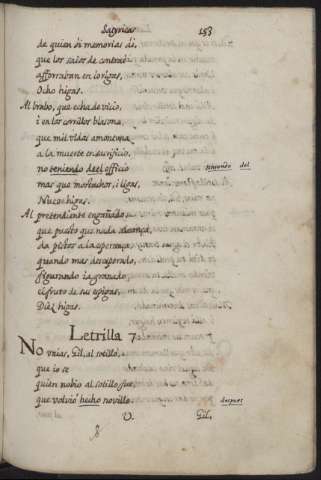 Satyricas 153
de quien di memorias di,
que los sacos de
afforraban en lo rigas,
Ocho higas.
Al brabo, que echa de vicio,
i en los corrillos blasona,
que mil vidas amontona
a la muerte en sacrificio,
no teniendo del officio teniendo del
mas que mostachos, i ligas,
Nueve higas.
Al pretendiente engañado,
que puesto que nada alcança,
da pistos a la esperança,
quando mas desesperado,
figurando ia granado
el fruto de sus espigas,
Diez higas.
Letrilla 7
No vaias, Gil, al sotillo,
que io se
quien nobio al sotillo fue,
que volvió hecho novillo. despues
V. Gil,
8